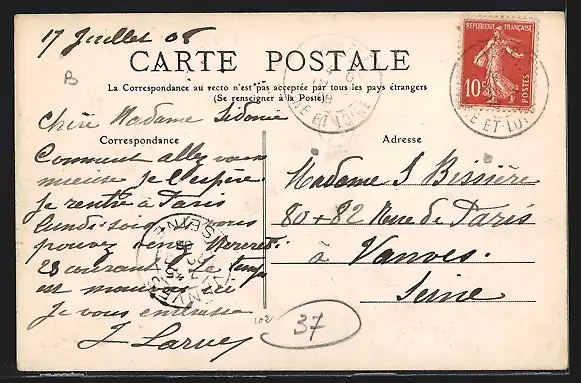 17 Juillet 08
CARTE POSTALE
B
La Correspondance au recto n'est pas acceptée par tous les pays étrangers
(Se renseigner à la Poste)
REPUBLIQUE FRANÇAISE
10
POSTES
E ET LOIRE
E ET LOI
Chère Madame Sidonie
Correspondance
Adresse
Comment allez vous
mieux je l'espère.
Je rentre à Paris
lundi soir vous
pouvez venir Mercredi
23 courant. Le temps
est mauvais ici
Je vous embrasse
J Larue
VANVES
SEINE
Madame S Bissière
80 + 82 Rue de Paris
à Vanves.
Seine
102
37